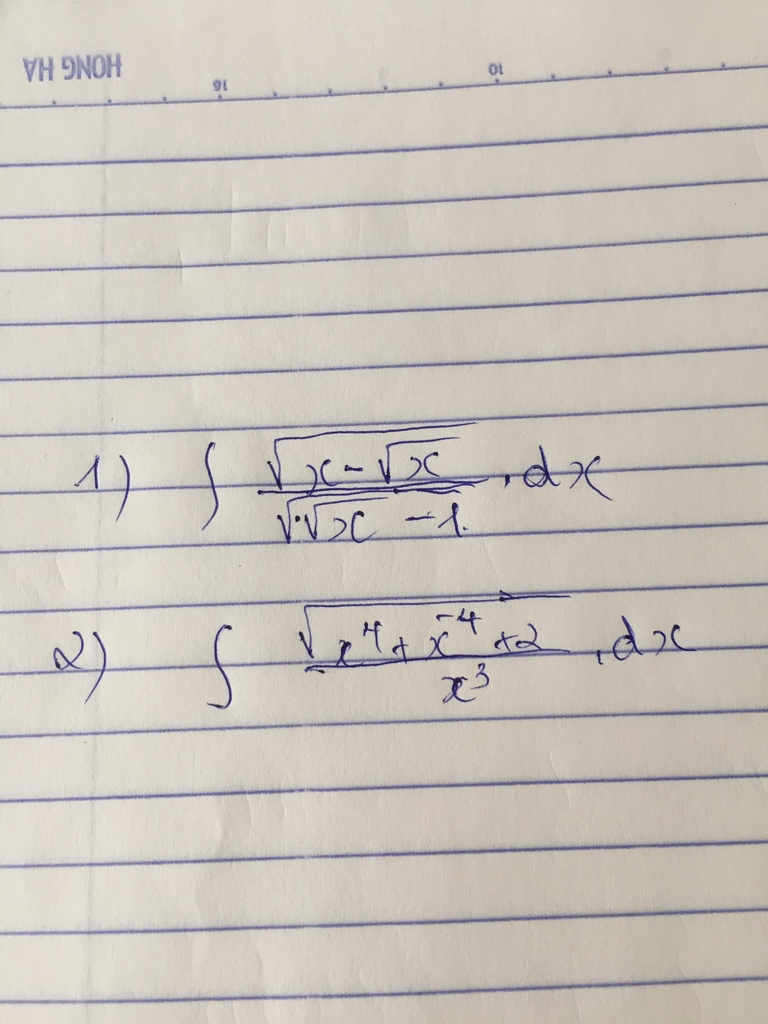 HONG HA
16 10
1) ∫ √(x-√x) / √(√x -1) . dx
2) ∫ √(x⁴+x⁻⁴+2) / x³ . dx